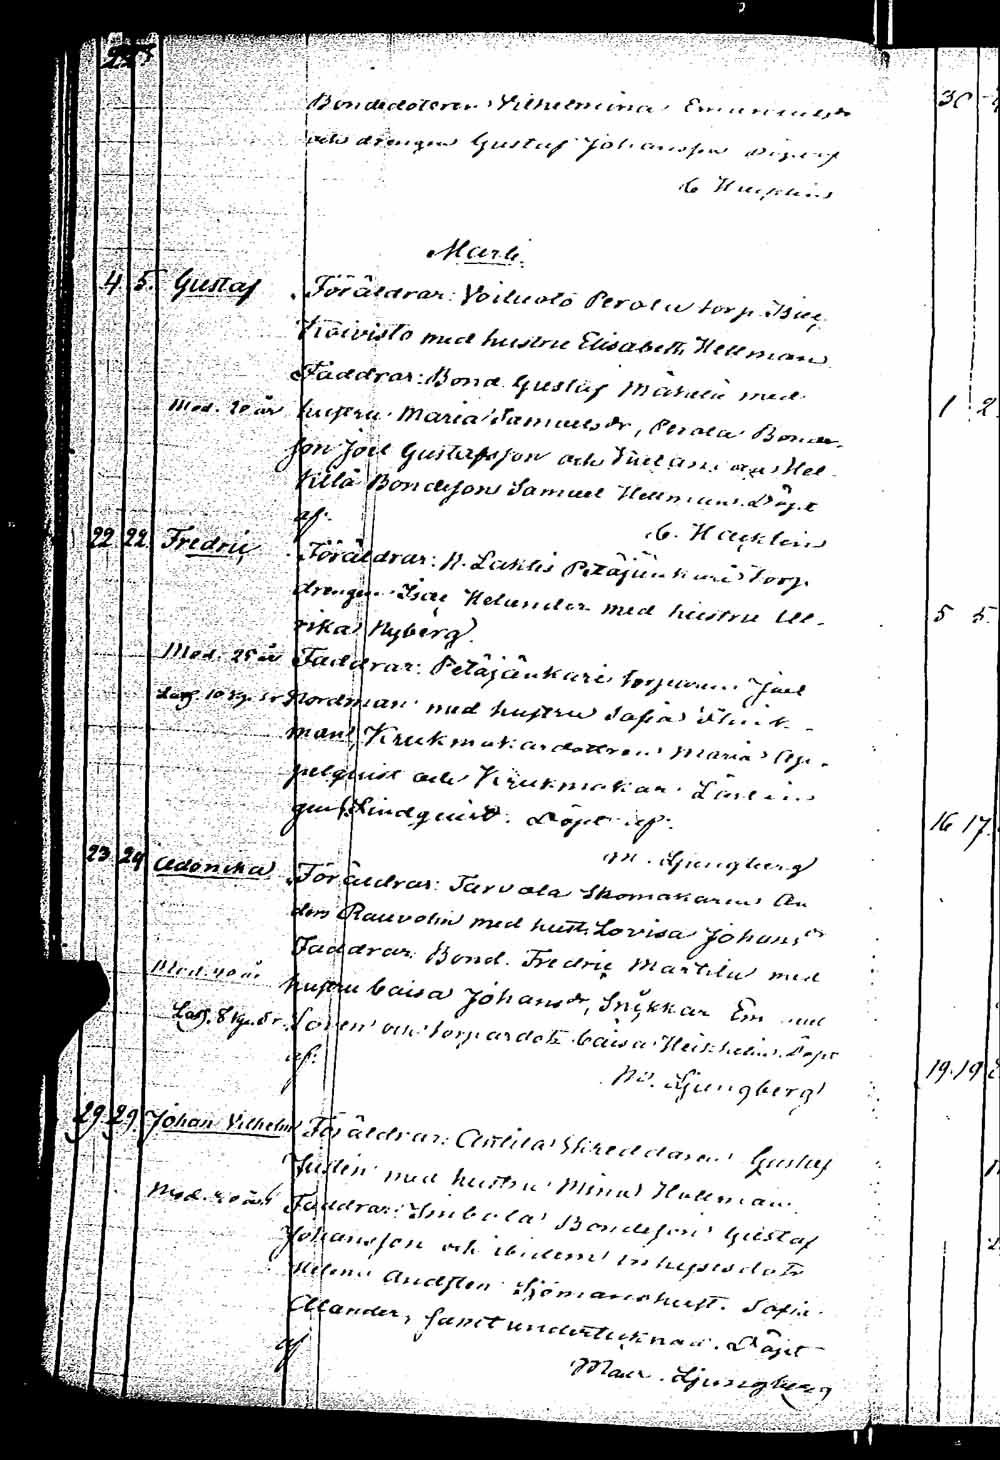 Bondedotteren Vilhelmina
och drengen Gustaf Johansson Döpt af
C Hacklin
Marti.
4 5. Gustaf Föräldrar: Voiluoto Perola torp. Isac
Koivisto med hustru Elisabeth Hellman
Faddrar: Bond. Gustaf med
Mod. 20 år hustru Maria Samuelsdr, Perola Bonde-
son Joel Gustafsson och
Killä Bondeson Samuel Hellman. Döpt
af. C. Hacklin
22 22. Fredric Föräldrar: N. Lahlis Petäjänkari Torp
drengen Isac Helander med hustru Ul-
rika Nyberg.
Mod. 25 år Faddrar: Petäjänkari torparen Joel
Nordman med hustru Sofia
man, Krukmakardottren Maria Ap-
pelquist och Krukmakar Lärlin
gen Lindquist. Döpt af.
M. Ljungberg
23. 24 Adonika Föräldrar: Tarvola Skomakaren An
ders Rauvolin med hust. Lovisa Johansdr
Faddrar: Bond. Fredric Martila med
Mod. 40 år hustru Caisa Johansdr, Snikkar Em
Lasf. 8 Loven och torpardotr Caisa Heikkelin. Döpt
af. M. Ljungberg
29. 29. Johan Vilhelm Föräldrar: Anttila Skreddaren Gustaf
Judin med hustru Mina Hollman.
Mod. 20 år Faddrar: Bondeson Gustaf
Johansson och ibidem inhysesdotr
Helena Sjömanshust. Sofia
Alander, samt undertecknad. Döpt
af Maur. Ljungberg
30
1 2
5 5.
16 17.
19. 19